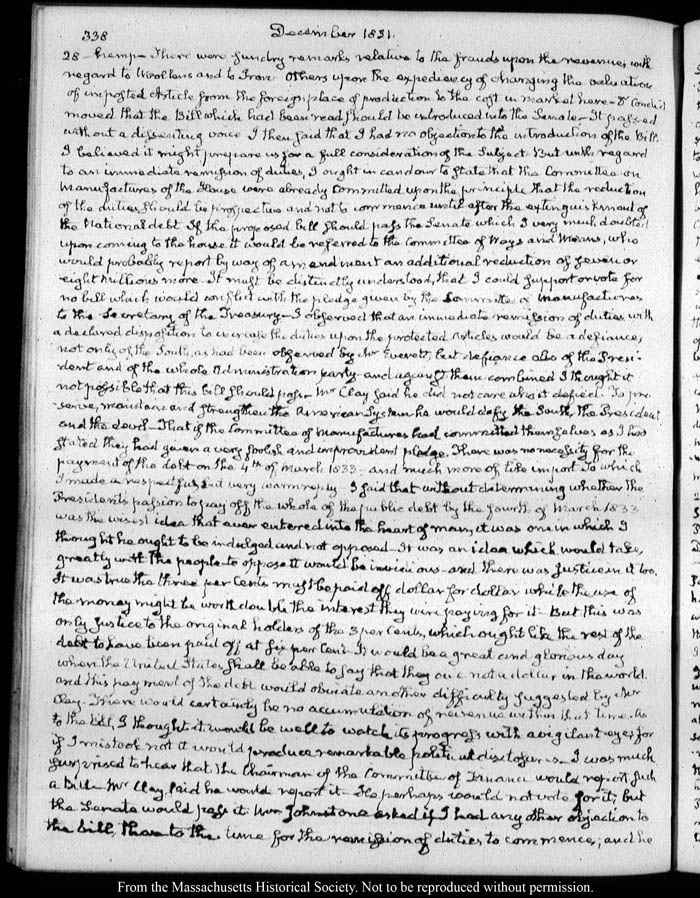 338 December 1831.
28 – hemp – There were sundry remarks relative to the frauds upon the revenue, with
regard to Woollens and to Iron. Others upon the expediency of changing the valuation
of imported Article from the foreign place of production to the cost in market here –
moved that the Bill which had been read should be introduced into the Senate – It passed
without a dissenting voice I then said that I had no objection to the introduction of the Bill.
I believed it might prepare us for a full consideration of the Subject. But with regard
to an immediate remission of duties, I ought in candour to state that the Committee on
Manufactures of the House were already committed upon the principle that the reduction
of the duties should be prospective and not to commence until after the extinguishment of
the National debt If the proposed bill should pass the Senate which I very much doubted
upon coming to the house it would be referred to the Committee of Ways and Means, who
would probably report by way of amendment an additional reduction of seven or
eight Millions more – It must be distinctly understood, that I could support or vote for
no bill which would conflict with the pledge given by the Committee of Manufactures
to the Secretary of the Treasury – I observed that an immediate remission of duties with
a declared disposition to increase the duties upon the protected Articles would be a defiance,
not only of the South, as had been observed by Mr Everett, but defiance also of the Presi-
dent and of the whole Administration party – and against them combined I thought it
not possible that this bill should pass – Mr Clay said he did not care who it defied. To pre-
serve, maintain and strengthen the American System he would defy the South, the President
and the devil – That if the Committee of Manufactures had committed themselves as I had
stated they had given a very foolish and improvident pledge. There was no necessity for the
payment of the debt on the 4th of March 1833 – and much more of like import To which
I made a respectful but very warm reply – I said that without determining whether the
President's passion to pay off the whole of the public debt by the fourth of March 1833
was the wisest idea that ever entered into the heart of man, it was one in which I
thought he ought to be indulged and not opposed – It was an idea which would take,
greatly with the people – to oppose it would be invidious – and there was justice in it too.
It was true the three per Cents must be paid off dollar for dollar while the use of
the money might be worth double the interest they were paying for it – But this was
only justice to the original holders of the 3 per Cents, which ought like the rest of the
debt to have been paid off at six per Cent. It would be a great and glorious day
when the United States shall be able to say that they owe not a dollar in the world.
and this payment of the debt would obviate another difficulty suggested by Mr
Clay. There would certainly be no accumulation of revenue within that time. As
to the bill, I thought it would be well to watch its progress with a vigilant eye, for
if I mistook not it would produce remarkable political disclosures – I was much
surprised to hear that the Chairman of the Committee of Finance would report such
a Bill – Mr Clay said he would report it – He perhaps would not vote for it, but
the Senate would pass it. Mr Johnstone asked if I had any other objection to
the bill, than to the time for the remission of duties to commence; and he
From the Massachusetts Historical Society. Not to be reproduced without permission.